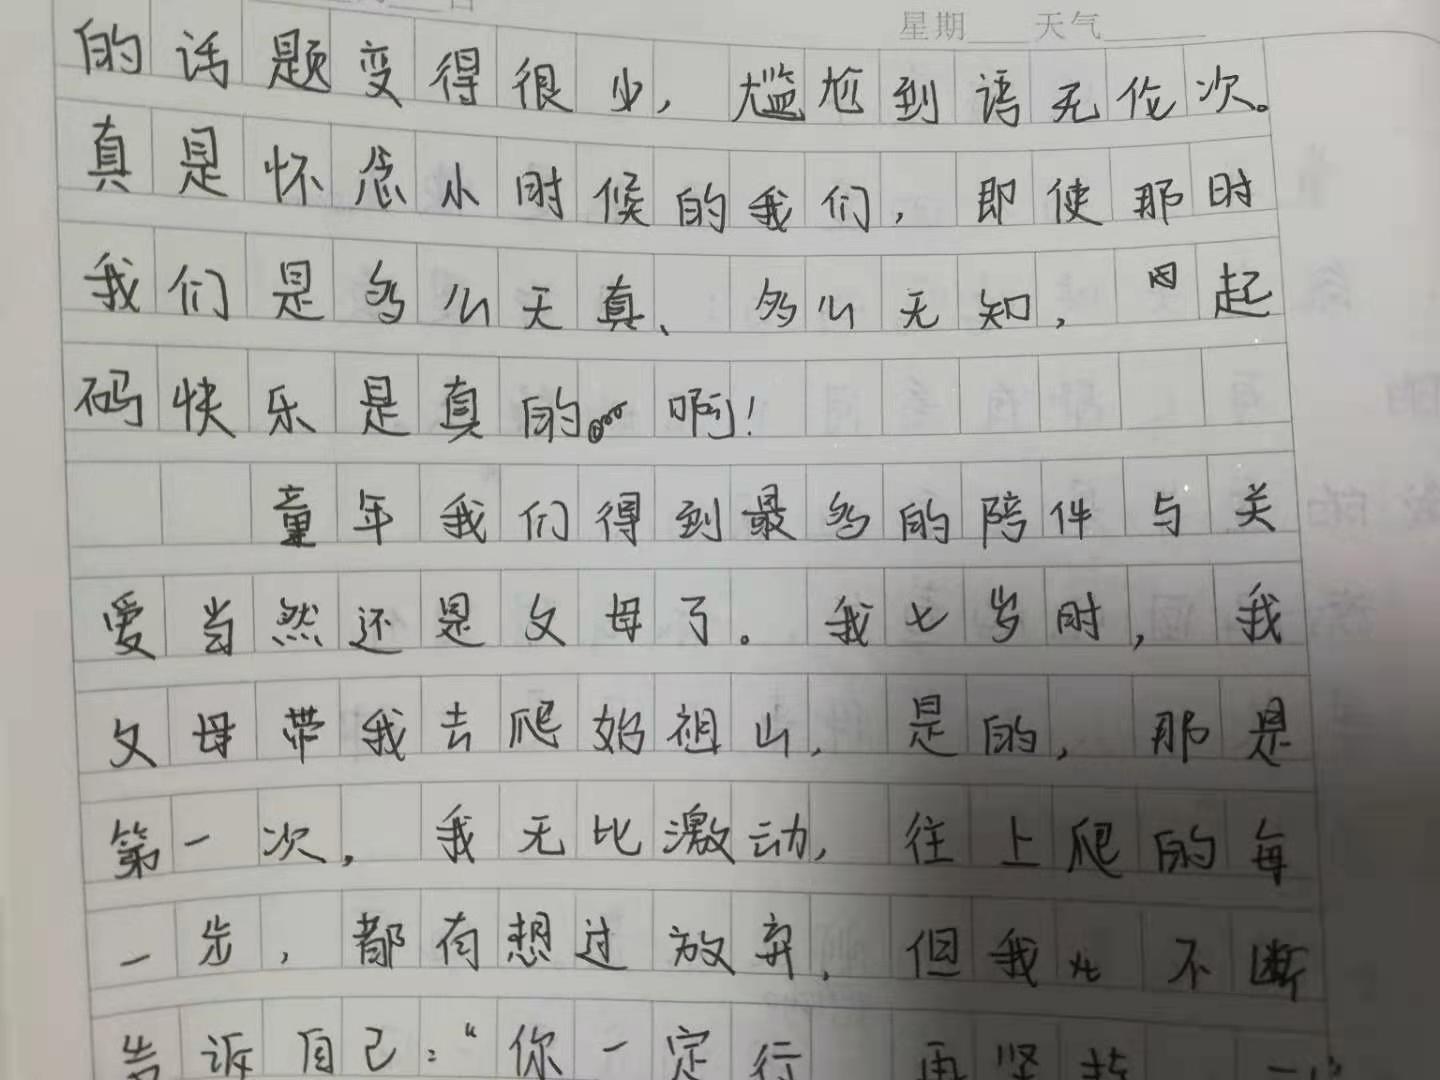 星期 天气
的话题变得很少，尴尬到语无伦次。
真是怀念小时候的我们，即使那时
我们是多么天真、多么无知，因起
码快乐是真的 啊！
童年我们得到最多的陪伴与关
爱当然还是父母了。我七岁时，我
父母带我去爬始祖山，是的，那是
第一次，我无比激动，往上爬的每
一步，都有想过放弃，但我 不断
告诉自己：“你一定行 再坚持